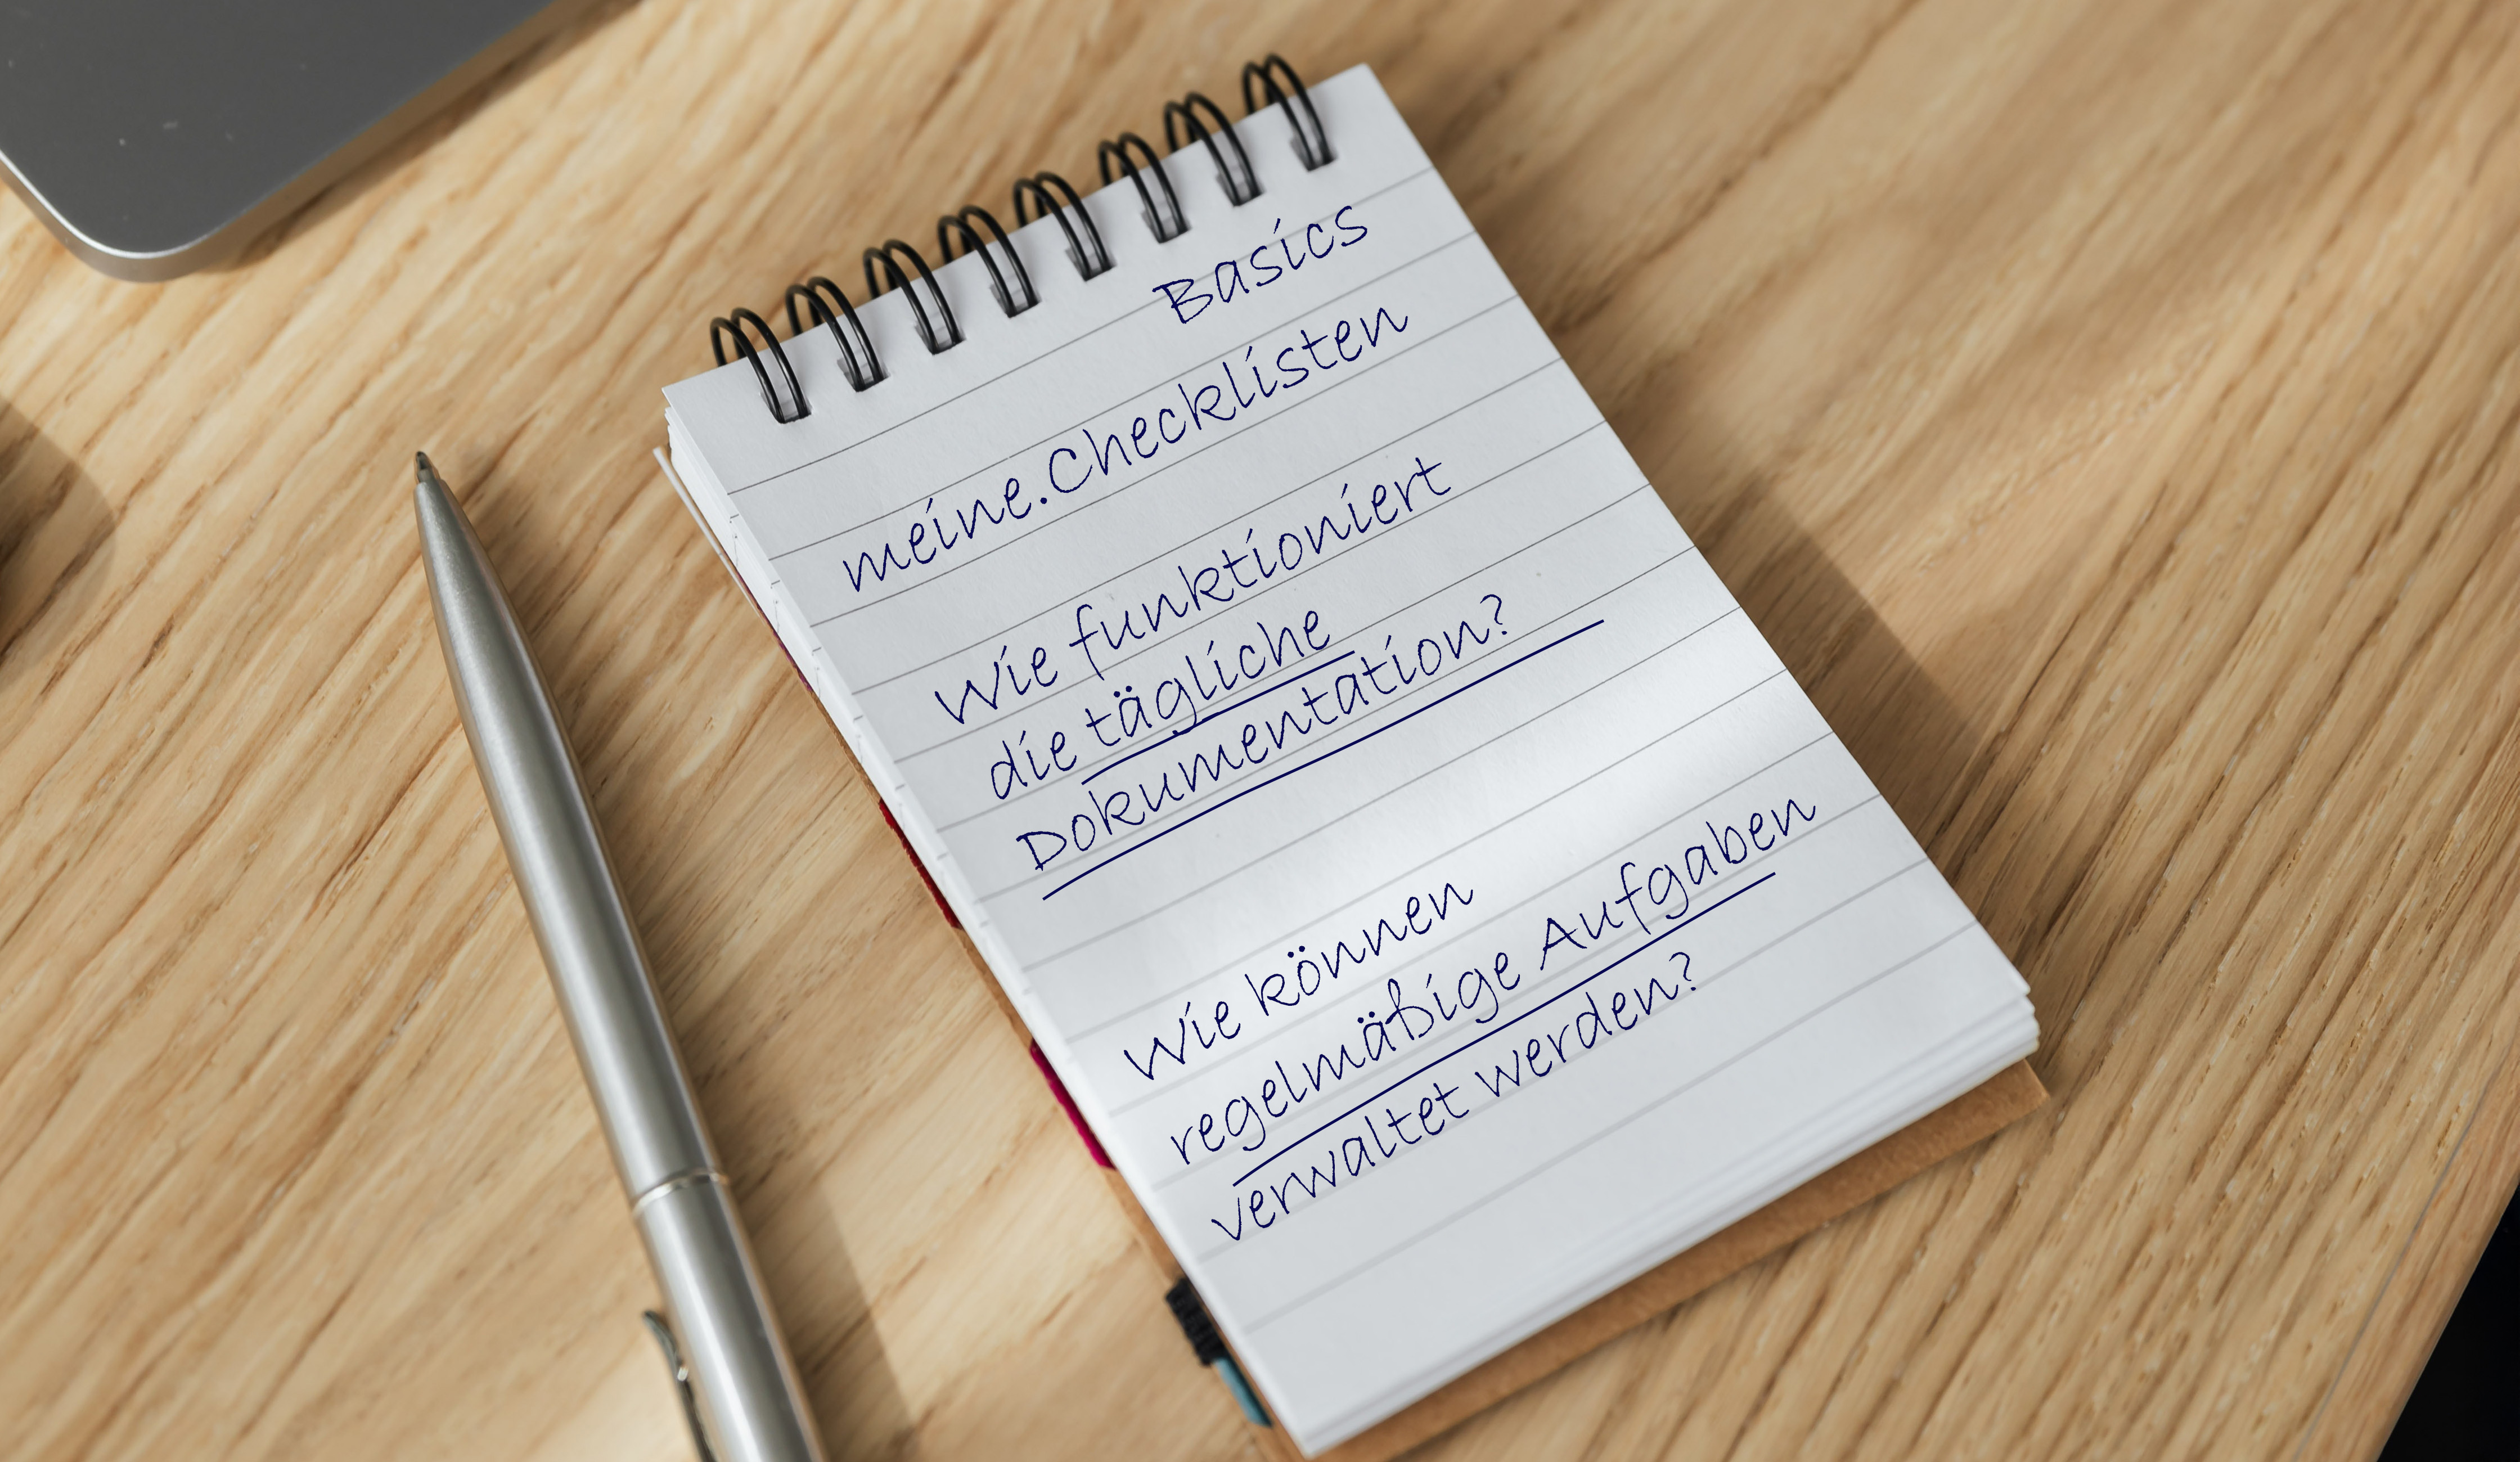 Basics
meine.Checklisten
Wie funktioniert
die tägliche
Dokumentation?
Wie können
regelmäßige Aufgaben
verwaltet werden?